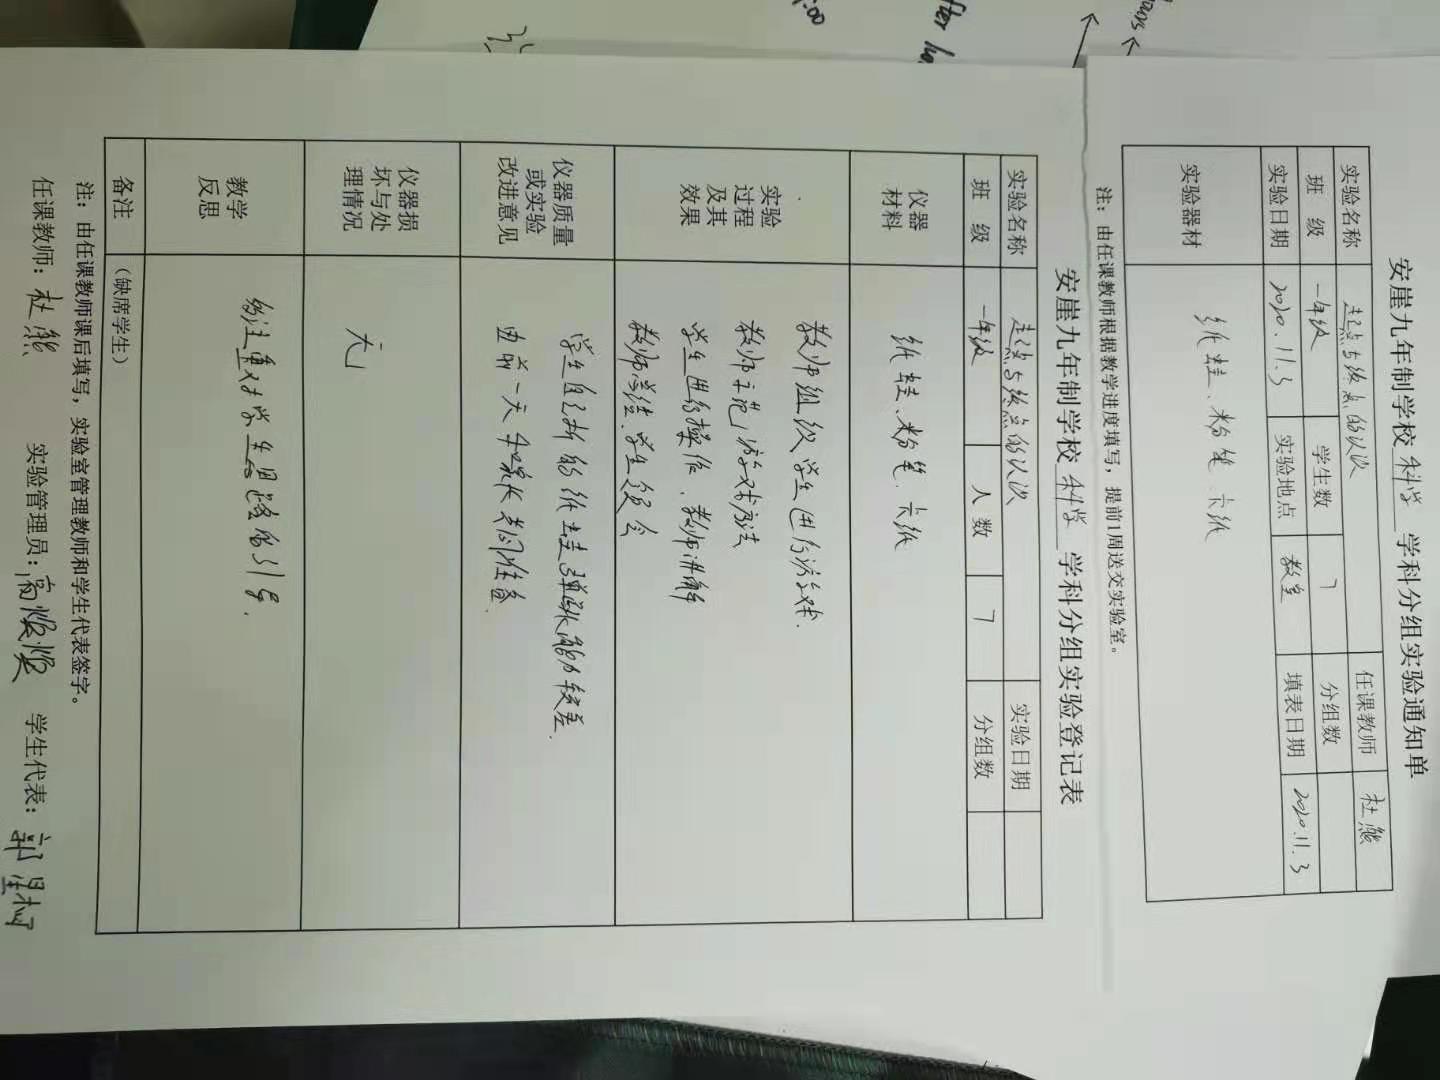 安崖九年制学校 科学 学科分组实验通知单
实验名称 起点与终点的认次 任课教师 杜熊
班 级 一年级 学生数 7 分组数
实验日期 2020.11.3 实验地点 教室 填表日期 2020.11.3
实验器材 纸蛙、粉笔、卡纸
注：由任课教师根据教学进度填写，提前1周送交实验室。
安崖九年制学校 科学 学科分组实验登记表
实验名称 起点与终点的认次 实验日期
班 级 一年级 人数 7 分组数
仪器
材料
纸蛙、粉笔、卡纸
实验
过程
及其
效果
教师组织学生进行游戏.
教师示范游戏玩法
学生进行操作、教师讲解
教师总结.学生领会
仪器质量
或实验
改进意见
学生自己折的纸蛙弹跳能力较差.
由前一天和家长共同准备.
仪器损
坏与处
理情况
无
教学
反思
多注重对学生思路的引导.
备注 （缺席学生）
注：由任课教师课后填写，实验室管理教师和学生代表签字。
任课教师：杜熊 实验管理员：高 学生代表：郭
after
:00